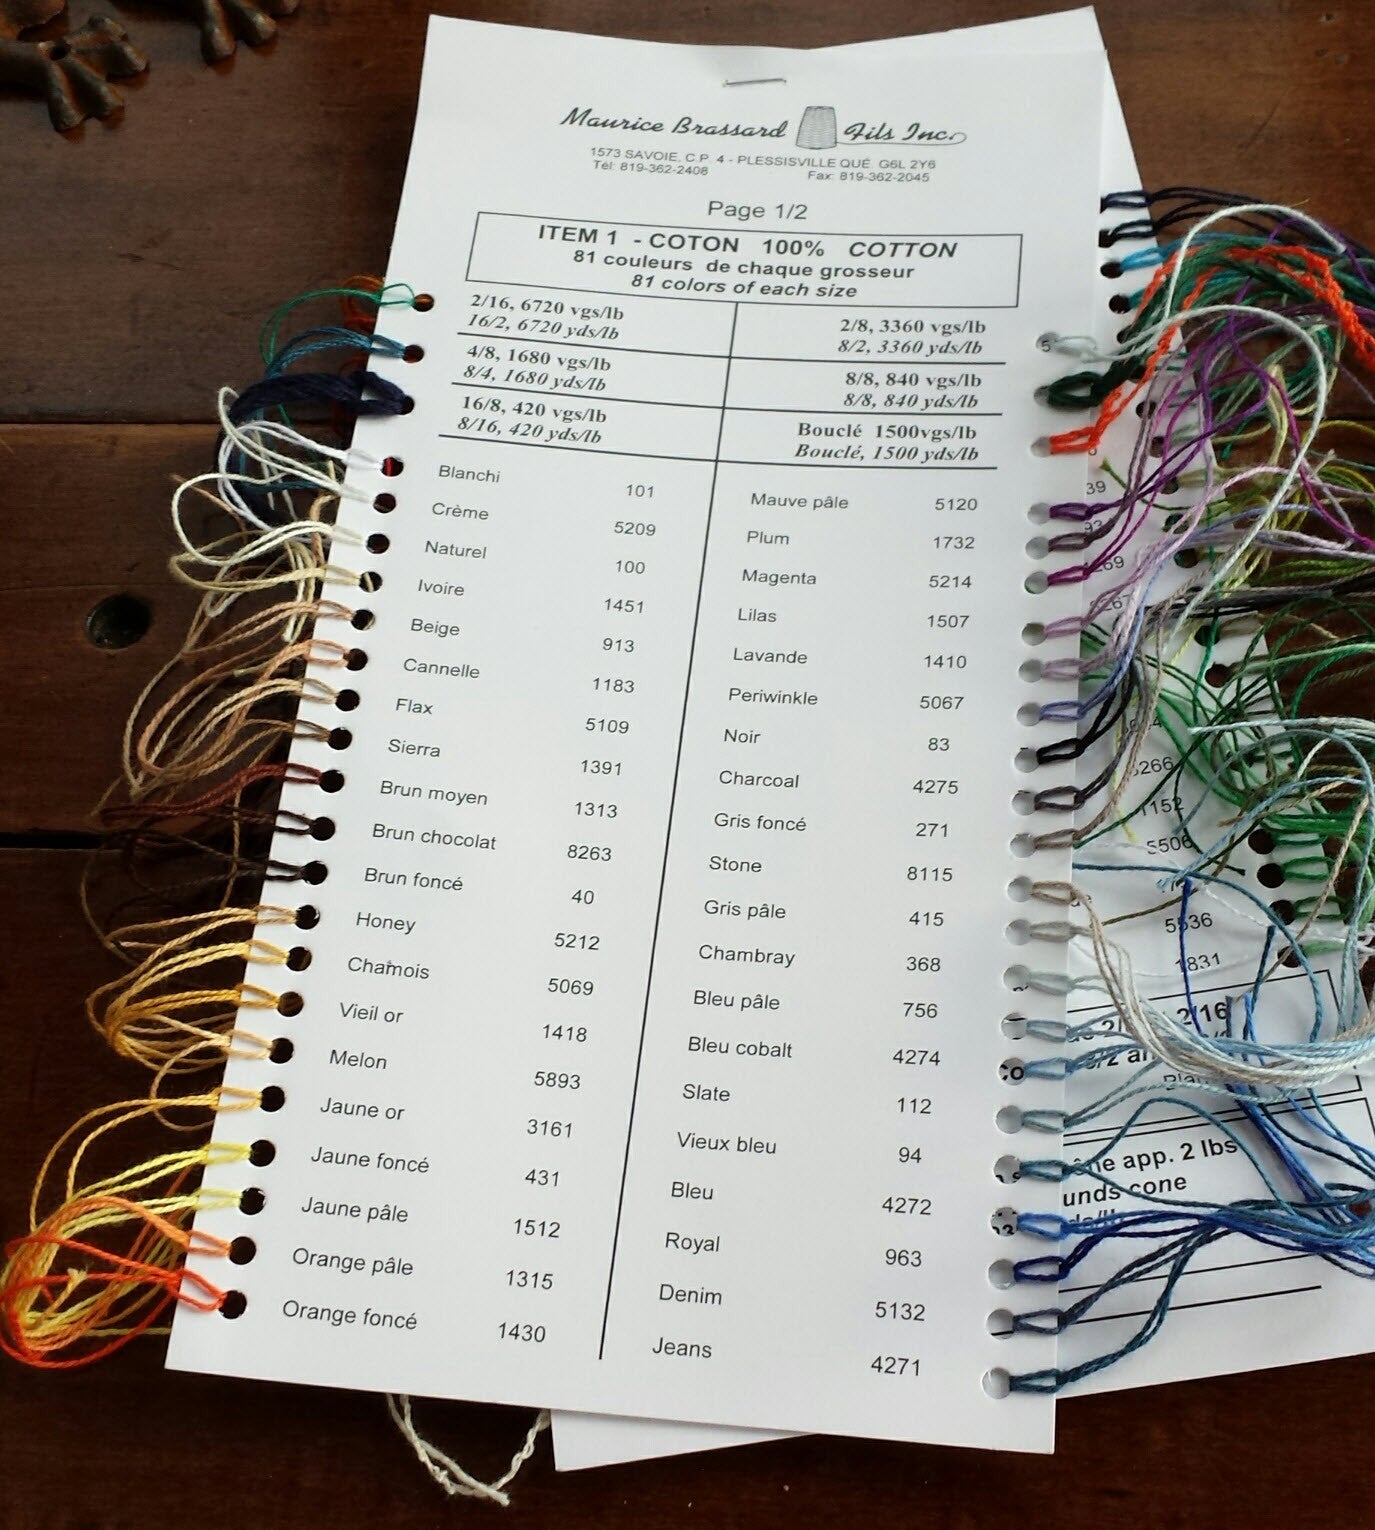 Maurice Brassard Fils Inc.
1573 SAVOIE, C.P. 4 - PLESSISVILLE QUÉ. G6L 2Y6
Tél: 819-362-2408 Fax: 819-362-2045
Page 1/2
ITEM 1 - COTON 100% COTTON
81 couleurs de chaque grosseur
81 colors of each size
2/16, 6720 vgs/lb
16/2, 6720 yds/lb
2/8, 3360 vgs/lb
8/2, 3360 yds/lb
4/8, 1680 vgs/lb
8/4, 1680 yds/lb
8/8, 840 vgs/lb
8/8, 840 yds/lb
16/8, 420 vgs/lb
8/16, 420 yds/lb
Bouclé 1500vgs/lb
Bouclé, 1500 yds/lb
Blanchi 101
Crème 5209
Naturel 100
Ivoire 1451
Beige 913
Cannelle 1183
Flax 5109
Sierra 1391
Brun moyen 1313
Brun chocolat 8263
Brun foncé 40
Honey 5212
Chamois 5069
Vieil or 1418
Melon 5893
Jaune or 3161
Jaune foncé 431
Jaune pâle 1512
Orange pâle 1315
Orange foncé 1430
Mauve pâle 5120
Plum 1732
Magenta 5214
Lilas 1507
Lavande 1410
Periwinkle 5067
Noir 83
Charcoal 4275
Gris foncé 271
Stone 8115
Gris pâle 415
Chambray 368
Bleu pâle 756
Bleu cobalt 4274
Slate 112
Vieux bleu 94
Bleu 4272
Royal 963
Denim 5132
Jeans 4271
1152
5506
5536
1831
2/16
app. 2 lbs
cone